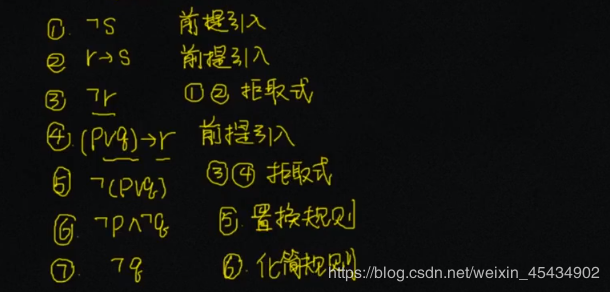 ① ¬S 前提引入
② r→S 前提引入
③ ¬r ①② 拒取式
④ (P∨q)→r 前提引入
⑤ ¬(P∨q) ③④ 拒取式
⑥ ¬P∧¬q ⑤ 置换规则
⑦ ¬q ⑥ 化简规则
https://blog.csdn.net/weixin_45434902